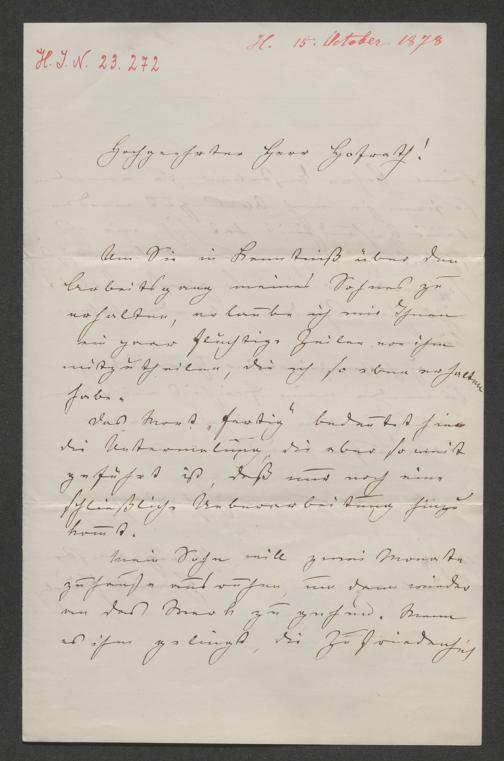 H. 15. October 1878
H. I. N. 23.272
Hochgeehrter Herr Hofrath!
Um Sie in Kenntniß über den
Arbeitsgang meines Sohnes zu
erhalten, erlaube ich mir Ihnen
ein paar flüchtige Zeilen von ihm
mitzutheilen, die ich so eben erhalten
habe.
Das Wort „fertig" bedeutet hier
die Untermalung, die aber so weit
geführt ist, daß nur noch eine
schließliche Ueberarbeitung hinzu
kommt.
Mein Sohn will zwei Monate
zuhause ausruhen, um dann wieder
an das Werk zu gehen. Wenn
es ihm gelingt, die Zufriedenheit